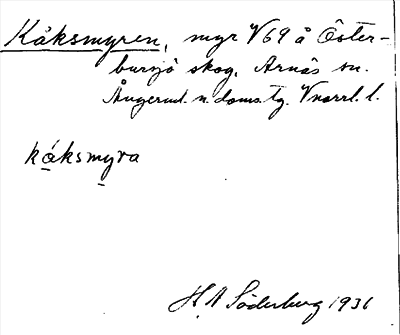 Kåksmyren, myr V69 å Öster-
bursjö skog, Arnäs sn.
Ångerml. n. doms.tg. Vnorrl. l.
kåksmyra
H A Söderberg 1936